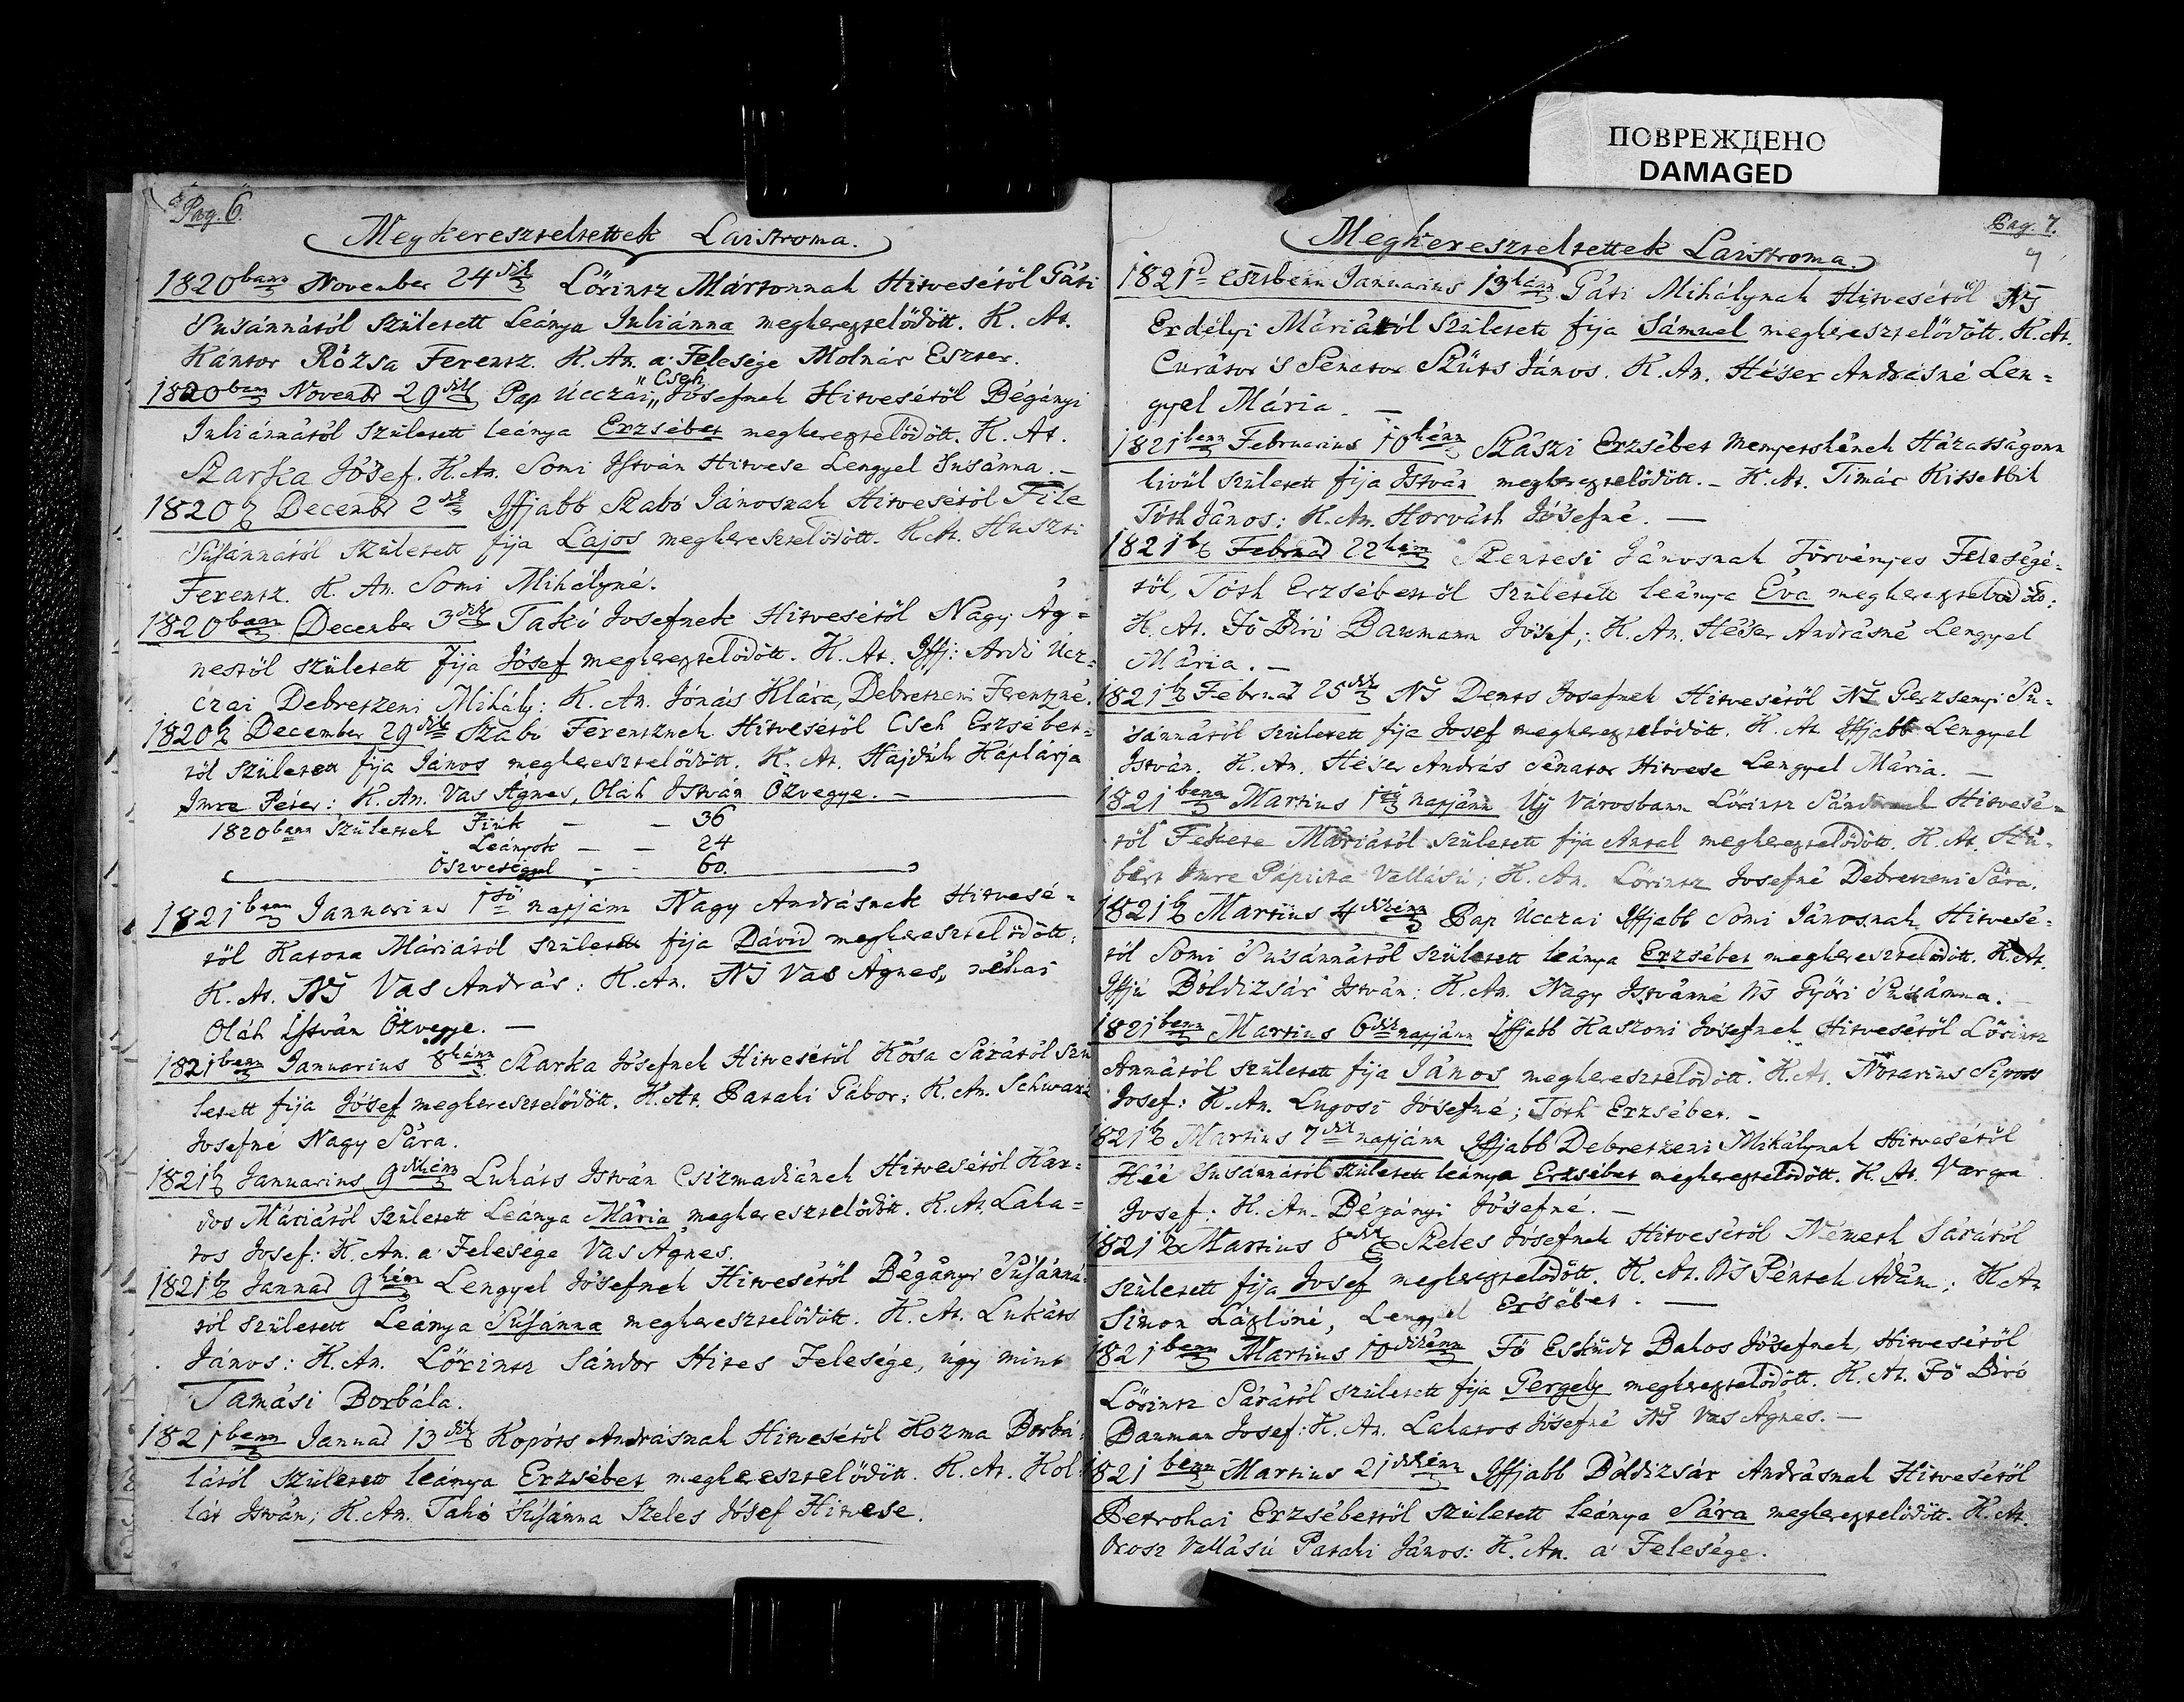 ПОВРЕЖДЕНО
DAMAGED
Pag. 6.
Megkereszteltettek Laistroma.
1820bann November 24dik Lörintz Mártonnak Hitvesétöl Gáti
Susánnától született Leánya Juliánna megkeresztelödött. K. At.
Kántor Rózsa Ferentz. K. An. a' Felesége Molnár Eszter.
1820bann Novembr 29dik Pap Úcczai „Cseh Jósefnek Hitvesétöl Bégányi
Juliánnától született leánya Erzsébet megkeresztelödött. K. At.
Szarka Jósef. K. An. Somi István Hitvese Lengyel Susánna. –
1820b Decembr 2dik Iffjabb Szabó Jánosnak Hitvesétöl File
Susánnától született fija Lajos megkeresztelödött. K. At. Huszti
Ferentz. K. An. Somi Mihályné.
1820bann December 3dik Takó Josefnek Hitvesétöl Nagy Ág=
nestöl született fija Jósef megkeresztelödött. K. At. Iffj: Ardó Úcz=
czai Debretzeni Mihály: K. An. Jónás Klára, Debretzeni Ferentzné.
1820b December 29dik Szabó Ferentznek Hitvesétöl Cseh Erzsébet=
töl született fija János megkeresztelödött. K. At. Hajdúk Káplárja
Imre Péter: K. An. Vas Ágnes, Oláh István Özvegye. –
1820bann születtek Fiúk – – 36
Leányok – – 24
Öszveséggel – – 60.
1821benn Januarius 1sö napjám Nagy Andrásnak Hitvesé=
töl Katona Máriától született fija Dávid megkeresztelödött;
K. At. NS Vas András: K. An. NS Vas Ágnes, néhai
Oláh István Özvegye. –
1821benn Januarius 8kánn Szarka Jósefnek Hitvesétöl Kósa Sárától szü
letett fija Jósef megkeresztelödött. K. At. Pataki Gábor; K. An. Schwarz
Josefné Nagy Sára.
1821b Januarius 9dikénn Lukáts István Csizmadiának Hitvesétöl Kar=
dos Máriától született Leánya Mária megkeresztelödött. K. At. Laka=
tos Josef: K. An. a' Felesége Vas Ágnes.
1821b Januar 9kén Lengyel Jósefnek Hitvesétöl Bégányi Susánná=
tól született Leánya Susánna megkeresztelödött. K. At. Lukáts
János: K. An. Lörintz Sándor Hites Felesége, úgy mint
Tamási Borbála.
1821benn Januar 13dik Kopóts Andrásnak Hitvesétöl Kozma Borbá=
lától született leánya Erzsébet megkeresztelödött. K. At. Kol=
lát István; K. An. Takó Susánna Szeles Jósef Hitvese.
Pag. 7.
7
Megkereszteltettek Laistroma.
1821d esztbenn Januarius 13kánn Gáti Mihálynak Hitvesétöl NS
Erdélyi Máriától született fija Sámuel megkeresztelödött. K. At.
Curátor 's Senator Szüts János. K. An. Héser Andrásné Len=
gyel Mária. –
1821benn Februarius 10kénn Szászi Erzsébet menyetskének Házasságonn
kivül született fija István megkeresztelödött. – K. At. Timár Kissebbik
Tóth János: K. An. Horváth Jósefné. –
1821b Februar 22kén Szentesi Jánosnak Törvényes Feleségé=
töl, Tóth Erzsébettöl született leánya Éva megkeresztelödött;
K. At. Fö Biró Baumann Jósef; K. An. Héser Andrásné Lengyel
Mária. –
1821b Februar 25dik NS Dents Josefnek Hitvesétöl NS Gerzsenyi Su=
sánnától született fija Josef megkeresztelödött. K. At. Iffjabb Lengyel
István. K. An. Héser András Senator Hitvese Lengyel Mária. –
1821benn Martius 1sö napjánn Ujj Városbann Lörintz Sándornak Hitvesé=
töl Fekete Máriától született fija Antal megkeresztelödött. K. At. Stu=
bert Imre Pápista Vallású; K. An. Lörintz Josefné Debretzeni Sára.
1821b Martius 4dikénn Pap Úcczai Iffjabb Somi Jánosnak Hitvesé=
töl Somi Susánnától született leánya Erzsébet megkeresztelödött. K. At.
Iffjú Bóldizsár István: K. An. Nagy Istvánné NS Györi Susánna. –
1821benn Martius 6dik napjánn Iffjabb Kaszoni Josefnek Hitvesétöl Lörintz
Annától született fija János megkeresztelödött. K. At. Nótarius Sipos
Josef: K. An. Lugosi Jósefné; Tóth Erzsébet. –
1821b Martius 7dik napjánn Iffjabb Debretzeni Mihálynak Hitvesétöl
Héé Susánnától született leánya Erzsébet megkeresztelödött. K. At. Varga
Josef: K. An. Bégányi Jósefné. –
1821b Martius 8dik Szeles Jósefnek Hitvesétöl Németh Sárától
született fija Josef megkeresztelödött. K. At. NS Péntek Ádám; K. An
Simon Lászlóné, Lengyel Ersébet. –
1821benn Martius 10dikénn Fö Esküdt Bakos Jósefnek, Hitvesétöl
Lörintz Sárától született fija Gergely megkeresztelödött. K. At. Fö Biró
Bauman Josef: K. An. Lakatos Jósefné NS Vas Ágnes. –
1821benn Martius 21dikénn Iffjabb Bóldizsár Andrásnak Hitvesétöl
Petrohai Erzsébettöl született leánya Sára megkeresztelödött. K. At.
Orosz Vallású Pataki János: K. An. a' Felesége.